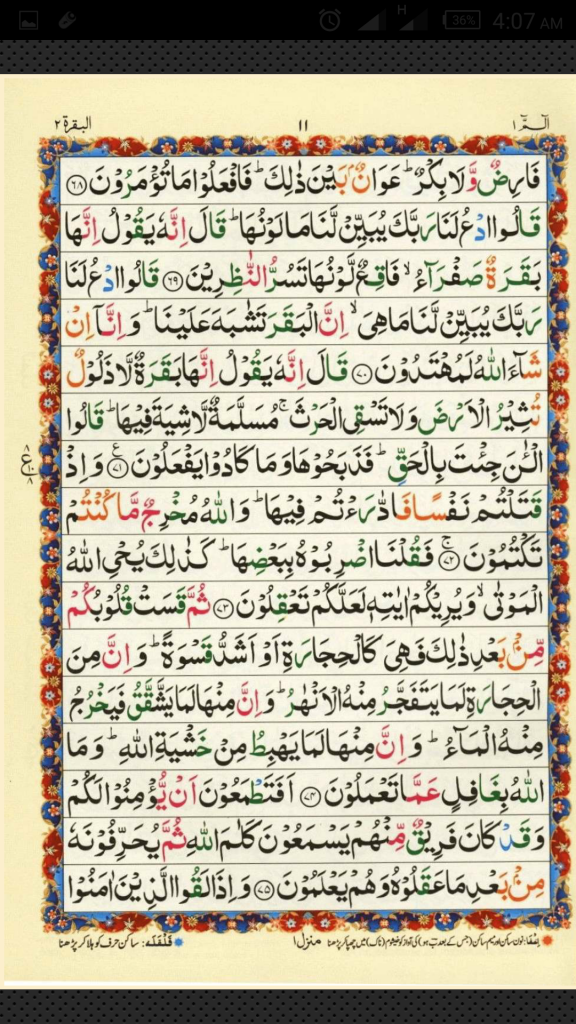 36% 4:07 AM
H
الٓمّٓ ١ ١١ البقرة ٢
فَارِضٌ وَّلَا بِكْرٌ ؕ عَوَانٌۢ بَيْنَ ذٰلِكَ ؕ فَافْعَلُوْا مَا تُؤْمَرُوْنَ ﴿۶۸﴾
قَالُوا ادْعُ لَنَا رَبَّكَ يُبَيِّنْ لَّنَا مَا لَوْنُهَا ؕ قَالَ اِنَّهٗ يَقُوْلُ اِنَّهَا
بَقَرَةٌ صَفْرَآءُ ۙ فَاقِعٌ لَّوْنُهَا تَسُرُّ النّٰظِرِيْنَ ﴿۶۹﴾ قَالُوا ادْعُ لَنَا
رَبَّكَ يُبَيِّنْ لَّنَا مَا هِىَ ۙ اِنَّ الْبَقَرَ تَشٰبَهَ عَلَيْنَا ؕ وَ اِنَّاۤ اِنْ
شَآءَ اللّٰهُ لَمُهْتَدُوْنَ ﴿۷۰﴾ قَالَ اِنَّهٗ يَقُوْلُ اِنَّهَا بَقَرَةٌ لَّا ذَلُوْلٌ
تُثِيْرُ الْاَرْضَ وَلَا تَسْقِى الْحَرْثَ ۚ مُسَلَّمَةٌ لَّا شِيَةَ فِيْهَا ؕ قَالُوا
الْـٰٔنَ جِئْتَ بِالْحَقِّ ؕ فَذَبَحُوْهَا وَمَا كَادُوْا يَفْعَلُوْنَ ﴿۷۱﴾ ع وَ اِذْ
۸ ع ۱۰ ۸
قَتَلْتُمْ نَفْسًا فَادّٰرَءْتُمْ فِيْهَا ؕ وَاللّٰهُ مُخْرِجٌ مَّا كُنْتُمْ
تَكْتُمُوْنَ ۚ ﴿۷۲﴾ فَقُلْنَا اضْرِبُوْهُ بِبَعْضِهَا ؕ كَذٰلِكَ يُحْىِ اللّٰهُ
الْمَوْتٰى ۙ وَيُرِيْكُمْ اٰيٰتِهٖ لَعَلَّكُمْ تَعْقِلُوْنَ ﴿۷۳﴾ ثُمَّ قَسَتْ قُلُوْبُكُمْ
مِّنْۢ بَعْدِ ذٰلِكَ فَهِىَ كَالْحِجَارَةِ اَوْ اَشَدُّ قَسْوَةً ؕ وَ اِنَّ مِنَ
الْحِجَارَةِ لَمَا يَتَفَجَّرُ مِنْهُ الْاَنْهٰرُ ؕ وَ اِنَّ مِنْهَا لَمَا يَشَّقَّقُ فَيَخْرُجُ
مِنْهُ الْمَآءُ ؕ وَ اِنَّ مِنْهَا لَمَا يَهْبِطُ مِنْ خَشْيَةِ اللّٰهِ ؕ وَمَا
اللّٰهُ بِغَافِلٍ عَمَّا تَعْمَلُوْنَ ﴿۷۴﴾ اَفَتَطْمَعُوْنَ اَنْ يُّؤْمِنُوْا لَكُمْ
وَقَدْ كَانَ فَرِيْقٌ مِّنْهُمْ يَسْمَعُوْنَ كَلٰمَ اللّٰهِ ثُمَّ يُحَرِّفُوْنَهٗ
مِنْۢ بَعْدِ مَا عَقَلُوْهُ وَهُمْ يَعْلَمُوْنَ ﴿۷۵﴾ وَ اِذَا لَقُوا الَّذِيْنَ اٰمَنُوْا
نون ساکن اور میم ساکن (جس کے بعد ب ہو) کی آواز کو خیشوم (ناک) میں چھپا کر پڑھنا منزل ١ قَلْقَلَہ: ساکن حرف کو ہلا کر پڑھنا